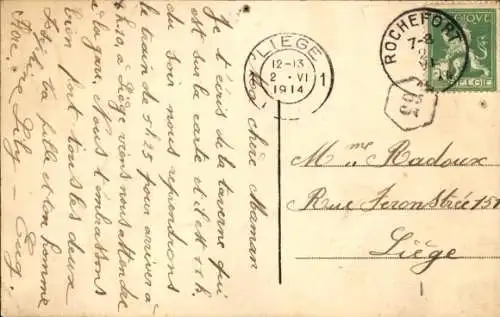 Ma chère Maman
Je t'écris de la taverne qui
est sur la carte et il est 11 h.
du soir nous reprendrons
le train de 5 h 25 pour arriver à
6 h 20, à Liège viens nous attendre
à la gare. Nous t'embrassons
bien fort tous les deux
ta fille et ton homme
Lily — Eug.
LIEGE 1
12-13
2 · VI
1914
ROCHEFORT
7-8
Mme Radoux
Rue Féronstrée 151
Liège